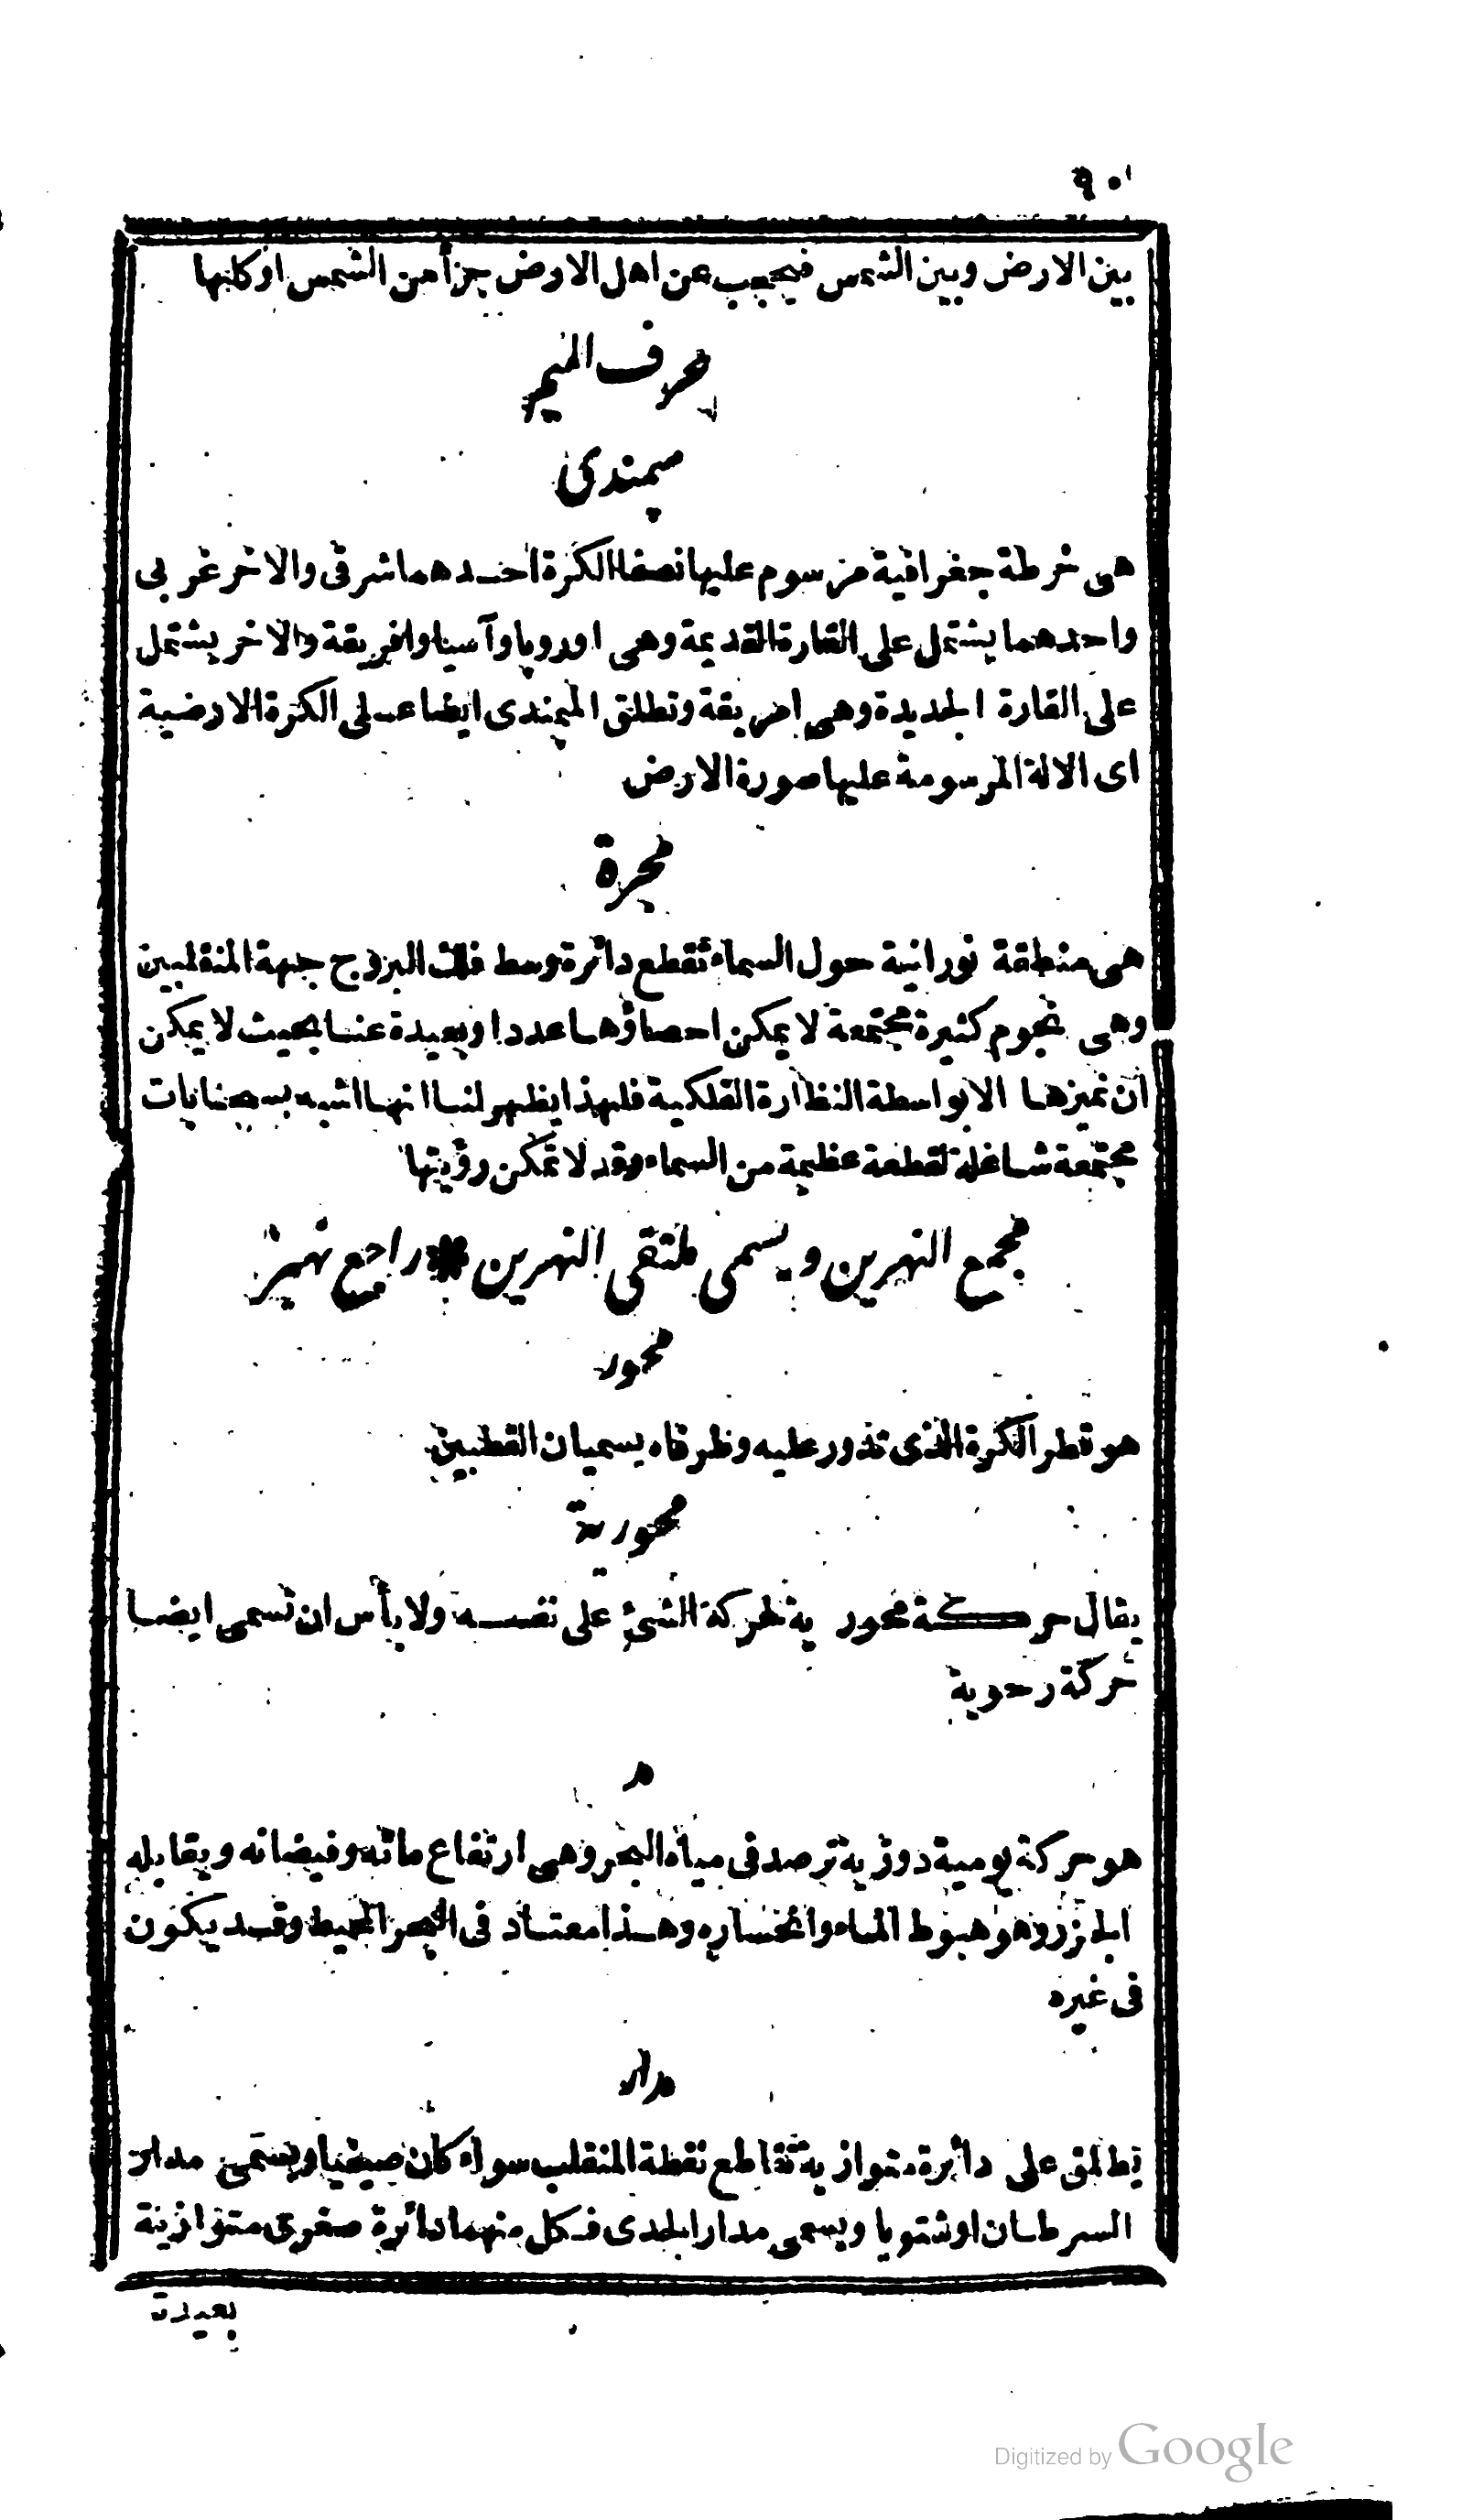 ٩٠
بين الارض وبين الشمس فيحجب عن اهل الارض جزأ من الشمس او كلها
حرف الميم
ميمندى
هى خرطة جغرافية مرسوم عليها نصفا الكرة احدهما شرقى والاخر غربى
واحدهما يشتمل على القارة القديمة وهى اوروپا وآسيا وافريقة والاخر يشتمل
على القارة الجديدة وهى امريقة وتطلق الميمندى ايضا على الكرة الارضية
اى الالة المرسومة عليها صورة الارض
مجرة
هى منطقة نورانية حول السماء تقطع دائرة وسط فلك البروج جهة المنقلبين
وهى نجوم كثيرة مجتمعة لا يمكن احصاؤها عددا وبعيدة عنا بحيث لا يمكن
ان نميزها الا بواسطة النظارة الفلكية فلهذا يظهر لنا انها اشبه بسحابات
مجتمعة شاغلة لقطعة عظيمة من السماء وقد لا تمكن رؤيتها
مجمع النهرين ويسمى ملتقى النهرين * راجع نهير
محور
هو قطر الكرة الذى تدور عليه وطرفاه يسميان القطبين
محورية
يقال حركة محورية لحركة الشئ على نفسه ولا بأس ان تسمى ايضا
حركة رحوية
مد
هو حركة يومية دورية ترصد فى مياه البحر وهى ارتفاع مائه وفيضانه ويقابله
الجزر وهو هبوط الماء وانحساره وهذا معتاد فى البحر المحيط وقد يكون
فى غيره
مدار
يطلق على دائرة متوازية تقاطع نقطة المنقلب سواء كان صيفيا ويسمى مدار
السرطان او شتويا ويسمى مدار الجدى فكل منهما دائرة صغرى متوازية
بعيدة
Digitized by Google